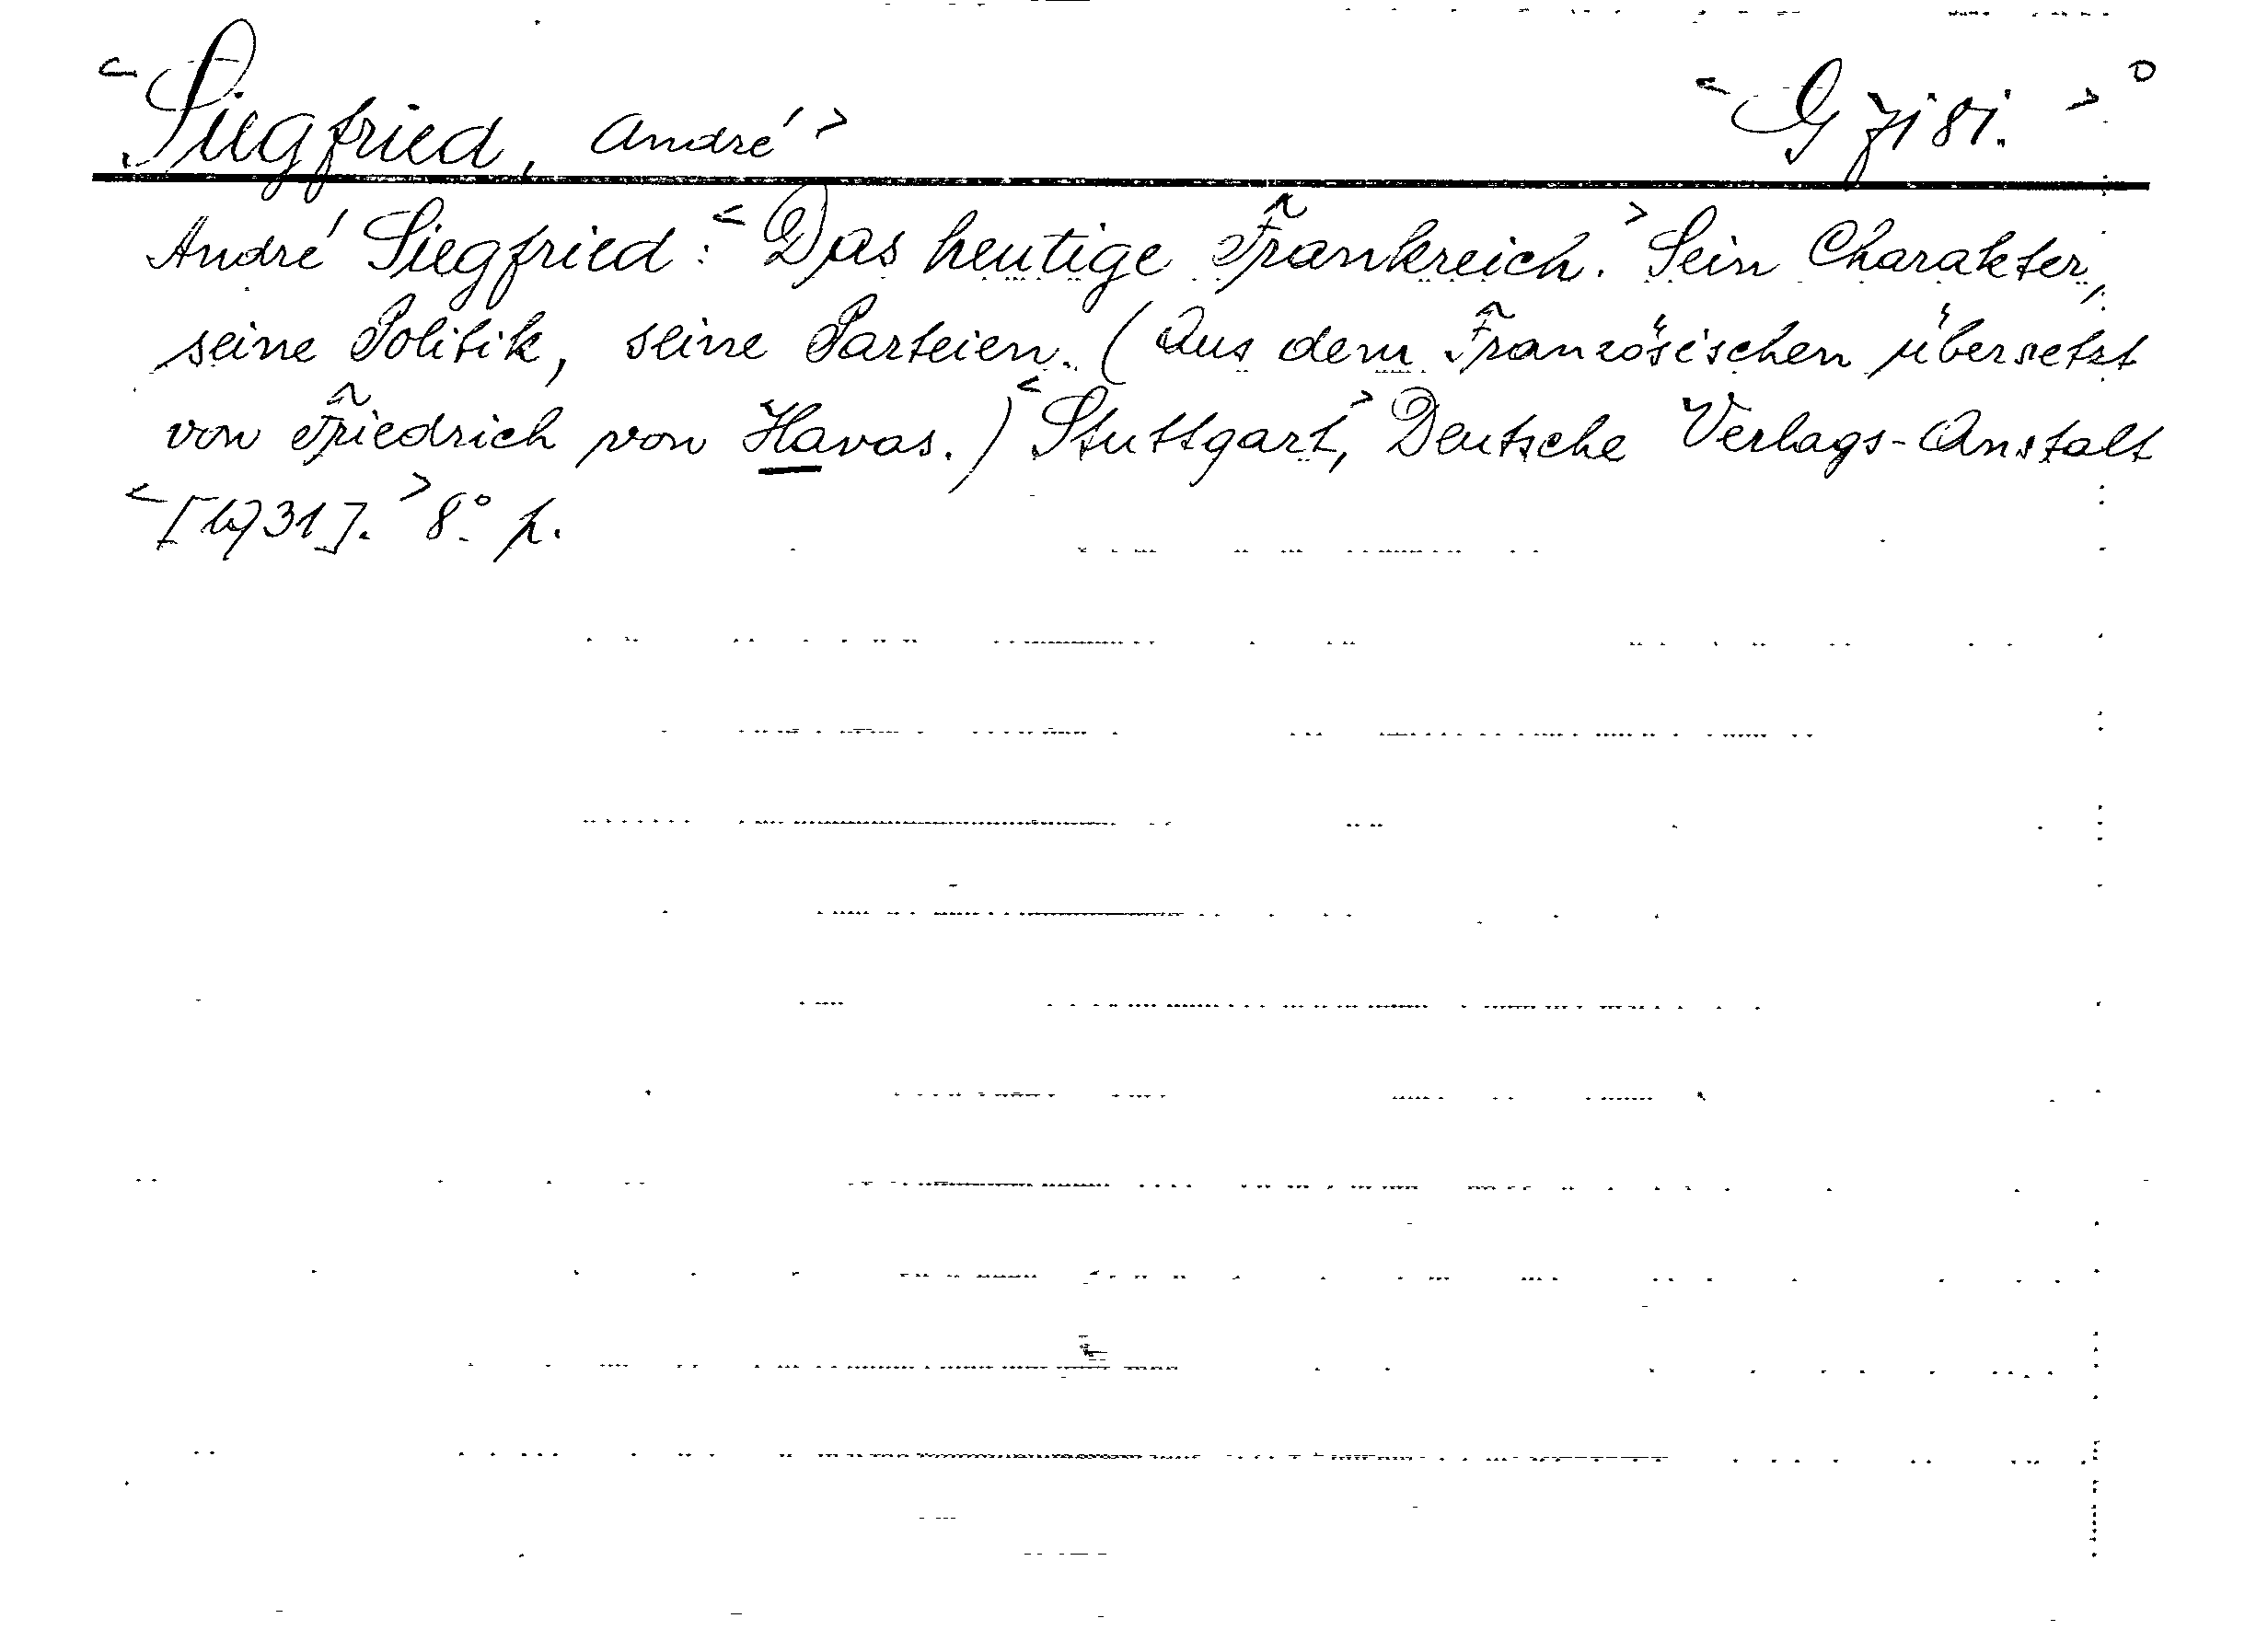 <Siegfried, André> <G 7181.>
André Siegfried: <Das heutige Frankreich.> Sein Charakter,
seine Politik, seine Parteien. (Aus dem Französischen übersetzt
von Friedrich von Havas.) <Stuttgart,> Deutsche Verlags-Anstalt
<[1931].> 8° p.